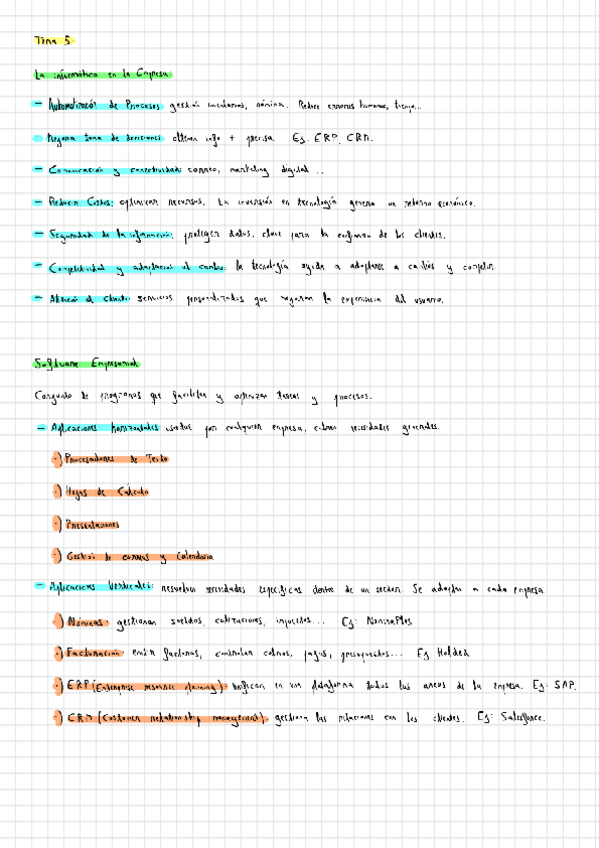 Tema 5.
La informática en la Empresa
- Automatización de Procesos gestión inventarios, nómina. Reduce errores humanos, tiempo...
- Mejora toma de decisiones obtener info + precisa. Ej. ERP, CRM.
- Comunicación y conectividad: correo, marketing digital...
- Reducir Costes: optimizar recursos. La inversión en tecnología genera un retorno económico.
- Seguridad de la información: proteger datos, clave para la confianza de los clientes.
- Competitividad y adaptación al cambio: la tecnología ayuda a adaptarse a cambios y competir.
- Atención al cliente: servicios personalizados que mejoran la experiencia del usuario.
Software Empresarial
Conjunto de programas que facilitan y optimizan tareas y procesos.
- Aplicaciones horizontales usadas por cualquier empresa, cubren necesidades generales.
·) Procesadores de Texto
·) Hojas de Cálculo
·) Presentaciones
·) Gestión de correos y Calendario
- Aplicaciones Verticales: resuelven necesidades específicas dentro de un sector. Se adaptan a cada empresa
·) Nóminas: gestionan sueldos, cotizaciones, impuestos... Ej: NominaPlus
·) Facturación: emitir facturas, controlan cobros, pagos, presupuestos... Ej Holded
·) ERP (Enterprise resource planning): unifican en una plataforma todas las áreas de la empresa. Ej: SAP.
·) CRM (Customer relationship management), gestionan las relaciones con los clientes. Ej: Salesforce.